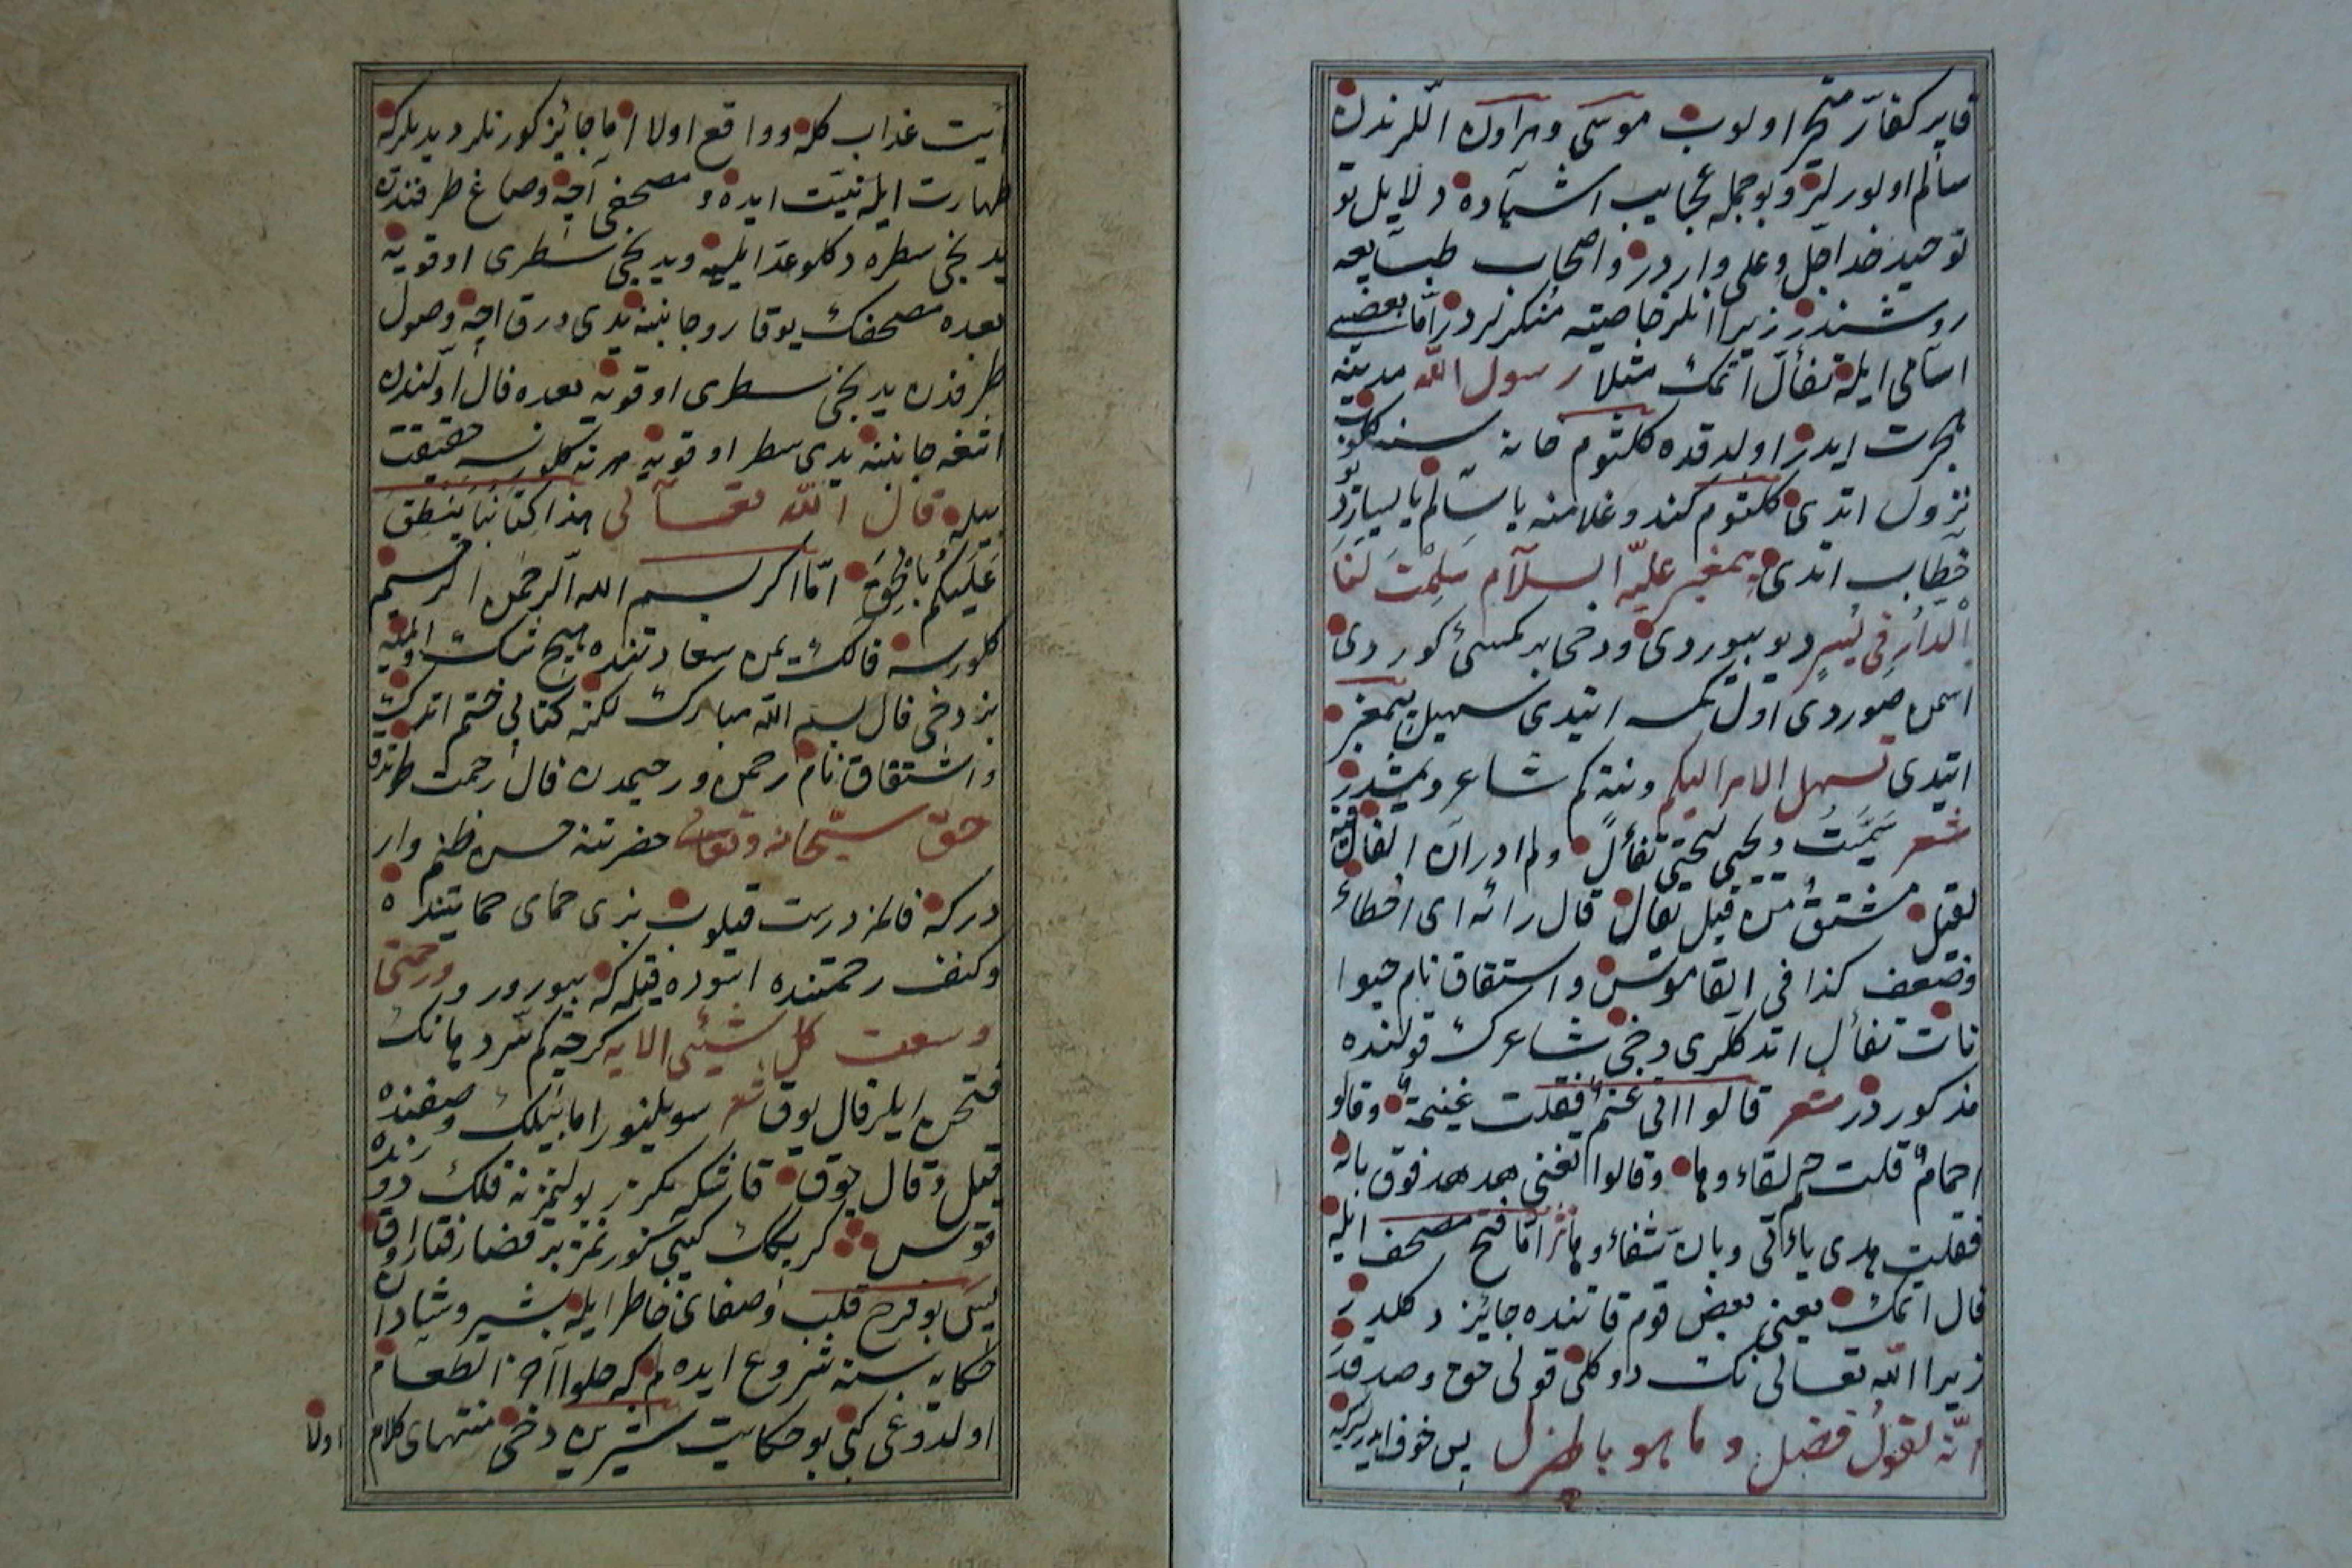 قاير كفار متحير اولوب موسى وهراون اللرندن
سالم اولورلر وبو جمله عجايب اشياده دلايل بو
توحيد خدا جل وعلى واردر واصحاب طبايعه
روشندر زيرا انلر خاصيته منكرلردر اما بعضى
اسامى ايله تفأل اتمك مثلا رسول الله مدينه
هجرت ايدر اولدقده كلثوم خانه سنه كلوب
نزول اتدى كلثوم كندو غلامنه يا سالم يا يسار ديو
خطاب اتدى پيغمبر عليه السلام سلمت لنا
الدار فى يسر ديو بيوردى ودخى بر كمسئ كوردى
اسمن صوردى اول كمسه ايتدى سهيل پيغمبر
ايتدى تسهل الامر اليكم ونته كم شاعر ديمشدر
شعر سميت يحيى ليحيى تفألا ولم ادر ان الفال فيه
لقيل مشتق من فيل تفال قال رائه اى اخطأ
وضعف كذا فى القاموس واشتقاق نام حيوا
نات تفأل اتدكلرى دخى شاعرك قولنده
مذكور در شعر قالوا اتى غنم فقلت غنيمة وقالوا
احمام قلت حم لقاءوها وقالوا تغنى هدهد فوق بانه
فقلت هدى ياءتى وبان شفاءوها نثر اما فتح مصحف ايله
فال اتمك يعنى بعض قوم قاتنده جائز دكلدر
زيرا الله تعالى نك دوكلى قولى حق وصدقدر
انه لقول فصل وما هو بالهزل پس خوف ايدرلركه
آيت عذاب كله وواقع اولا اما جائز كورنلر ديديلركه
طهارت ايله نيت ايده و مصحفى آچه وصاغ طرفندن
يدنجى سطره دكلو عد ايليه ويدنجى سطرى اوقويه
بعده مصحفك يوقارو جانبنه يدى ورق آچه وصول
طرفدن يدنجى سطرى اوقويه بعده فال اولندن
اشغه جانبنه يدى سطر اوقويه هر نه كلورسه حقيقت
بيله قال الله تعالى هذا كتابنا ينطق
عليكم بالحق اما اكر بسم الله الرحمن الرحيم
كلورسه فالك يمن سعادتنده هيچ شك اولميه
بز دخى فال بسم الله مبارك لكنه كتابى ختم اتدك
واشتقاق نام رحمن ورحيمدن فال رحمت طوتدق
حق سبحانه وتعالى حضرتنه حسن ظنم وار
دركه فالمز درست قيلوب بزى حماى حمايتنده
وكنف رحمتنده اسوده قيله كه بيورور ورحمتى
وسعت كل شيئى الايه كرچه كم سر دهانك
فتحن ايلر فال يوق شعر سويلنور اما بيلك وصفنده
قيل وقال يوق قاشكه بكزر بولنمز نه فلك دور
قوس كريمك كيبى كورنمز بر قضا رفتار اوق
پس بو فرح قلب وصفاى خاطر ايله بشير وشادان
حكايه سنه شروع ايده لم كه حلوا آخر الطعام
اولدوغى كبى بو حكايت شيرين دخى منتهاى كلام
اولا